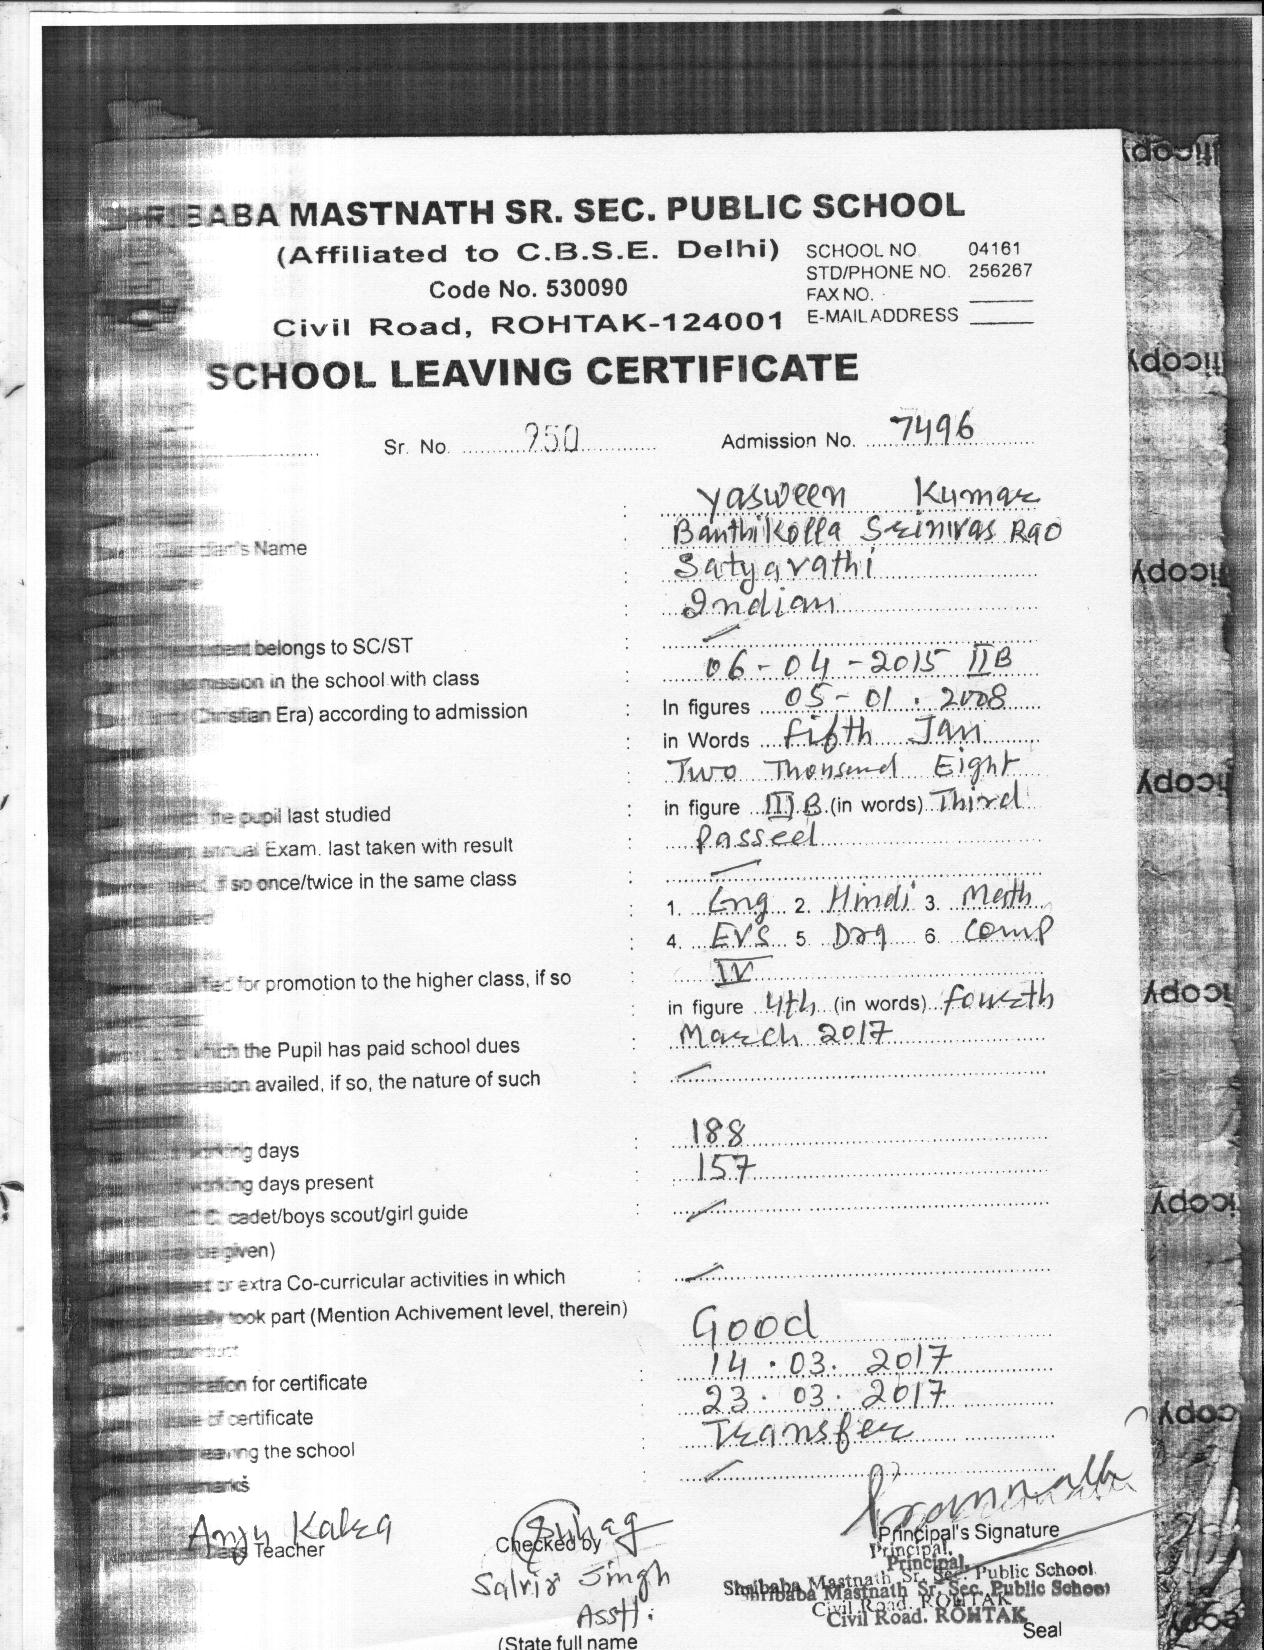 SHRI BABA MASTNATH SR. SEC. PUBLIC SCHOOL
(Affiliated to C.B.S.E. Delhi)
SCHOOL NO. 04161
STD/PHONE NO. 256267
Code No. 530090
FAX NO.
E-MAIL ADDRESS
Civil Road, ROHTAK-124001
SCHOOL LEAVING CERTIFICATE
Sr. No. 950 Admission No. 7496
: Yasween Kumar
's Name : Banthikolla Srinivas Rao
: Satyavathi
: Indian
belongs to SC/ST :
in the school with class : 06-04-2015 II B
(Christian Era) according to admission : In figures 05-01.2008
: in Words Fifth Jan
: Two Thousend Eight
the pupil last studied : in figure III B (in words) Third
Exam. last taken with result : Passed
if so once/twice in the same class :
: 1. Eng 2. Hindi 3. Math
: 4. EVS 5. Drg 6. Comp
for promotion to the higher class, if so : IV
: in figure 4th (in words) fourth
which the Pupil has paid school dues : March 2017
availed, if so, the nature of such :
days : 188
working days present : 157
cadet/boys scout/girl guide :
be given)
or extra Co-curricular activities in which :
took part (Mention Achivement level, therein)
Good
for certificate : 14.03.2017
of certificate : 23.03.2017
the school : Transfer
:
Anju Kalra
Teacher
Checked by
Singh
Asstt.
(State full name
Principal's Signature
Principal,
Principal,
Shribaba Mastnath Sr. Sec. Public School
Shribaba Mastnath Sr. Sec. Public School
Civil Road. ROHTAK
Civil Road. ROHTAK
Seal